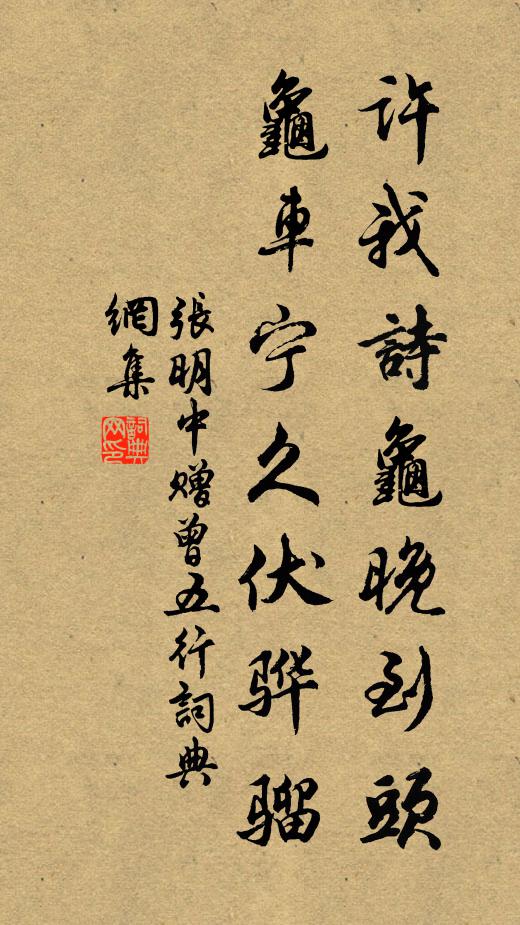 許我詩龜晚到頭
龜車宁久伏骅骝
張明中赠曾五行詞典
網集
詞典
网印